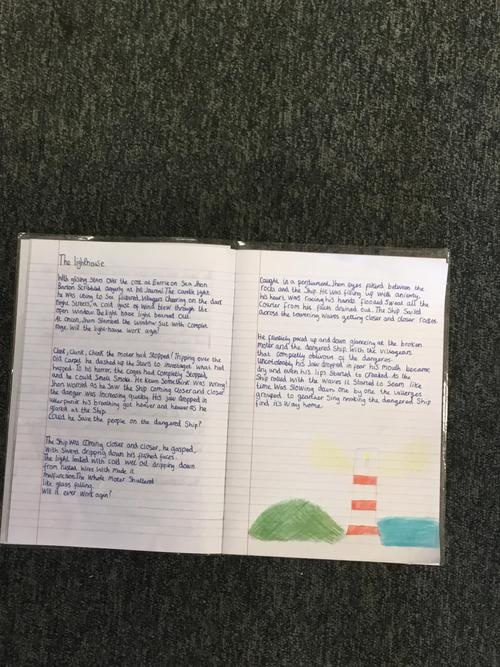 The lighthouse
With glising Stars Over the cost at Eerrie on Sea. Jhon
Barton Scribbled eagerly at his Journal. The candle light
he was using to See flutured. Villagers Cheering on the dark
Night Screens, a cold gust of wind blew through the
open Window. The light house light burned out.
At onion, Jhon Slambed the Window Sut with Complin
Rage. Will the light house work again?
Clunt, Clunk, Clunk the motor had Stopped! Tripping over the
old Carpet he dashed up the Stairs to investaget what had
happed. To his horror, the Coges had Completly Stopped,
and he could Smell Smoke. He Knew Somethink Was Wrong!
Jhon worried as he Saw the Ship Coming closer and closer
the danger was increasing quickly. His jaw dropped in
utter panic his breathing got heavier and hevier as he
glared at the Ship.
Could he Save the people on the dangered Ship?
The Ship was Coming closer and closer, he gasped,
With Sweat dripping down his pached faces.
The light leaked with cold wet oil dripping down
from rusted wires Witch made it
malfunction. The Whole Motor Shattered
like glass falling.
Will it ever work again?
Caught in a perdiument, Jhon eyes flited between the
rocks and the Ship. He was filling up with anxiety,
his hears was racing his hands flooded Sweat all the
Coulor from his face drained out. The Ship Sailed
across the towering waves getting closer and closer rockes.
He franticly paced up and down glancing at the broken
Motor and the dangered Ship. With the Villagears
that completly oblivios of the dangeres
Uncontrolably his Jaw dropped in fear his Mouth became
dry and even his lips Started to Cracked. As the
Ship rolled with the Waves it Started to Seem like
time Was Slowing down one by one the villergers
grouped to geather Sing making the dangered Ship
find it's Way home.